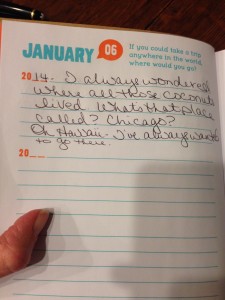 JANUARY 06
If you could take a trip
anywhere in the world,
where would you go?
2014. I always wondered
where all those coconuts
lived. Whats that place
called? Chicago?
Oh Hawaii - I've always wanted
to go there.
20__